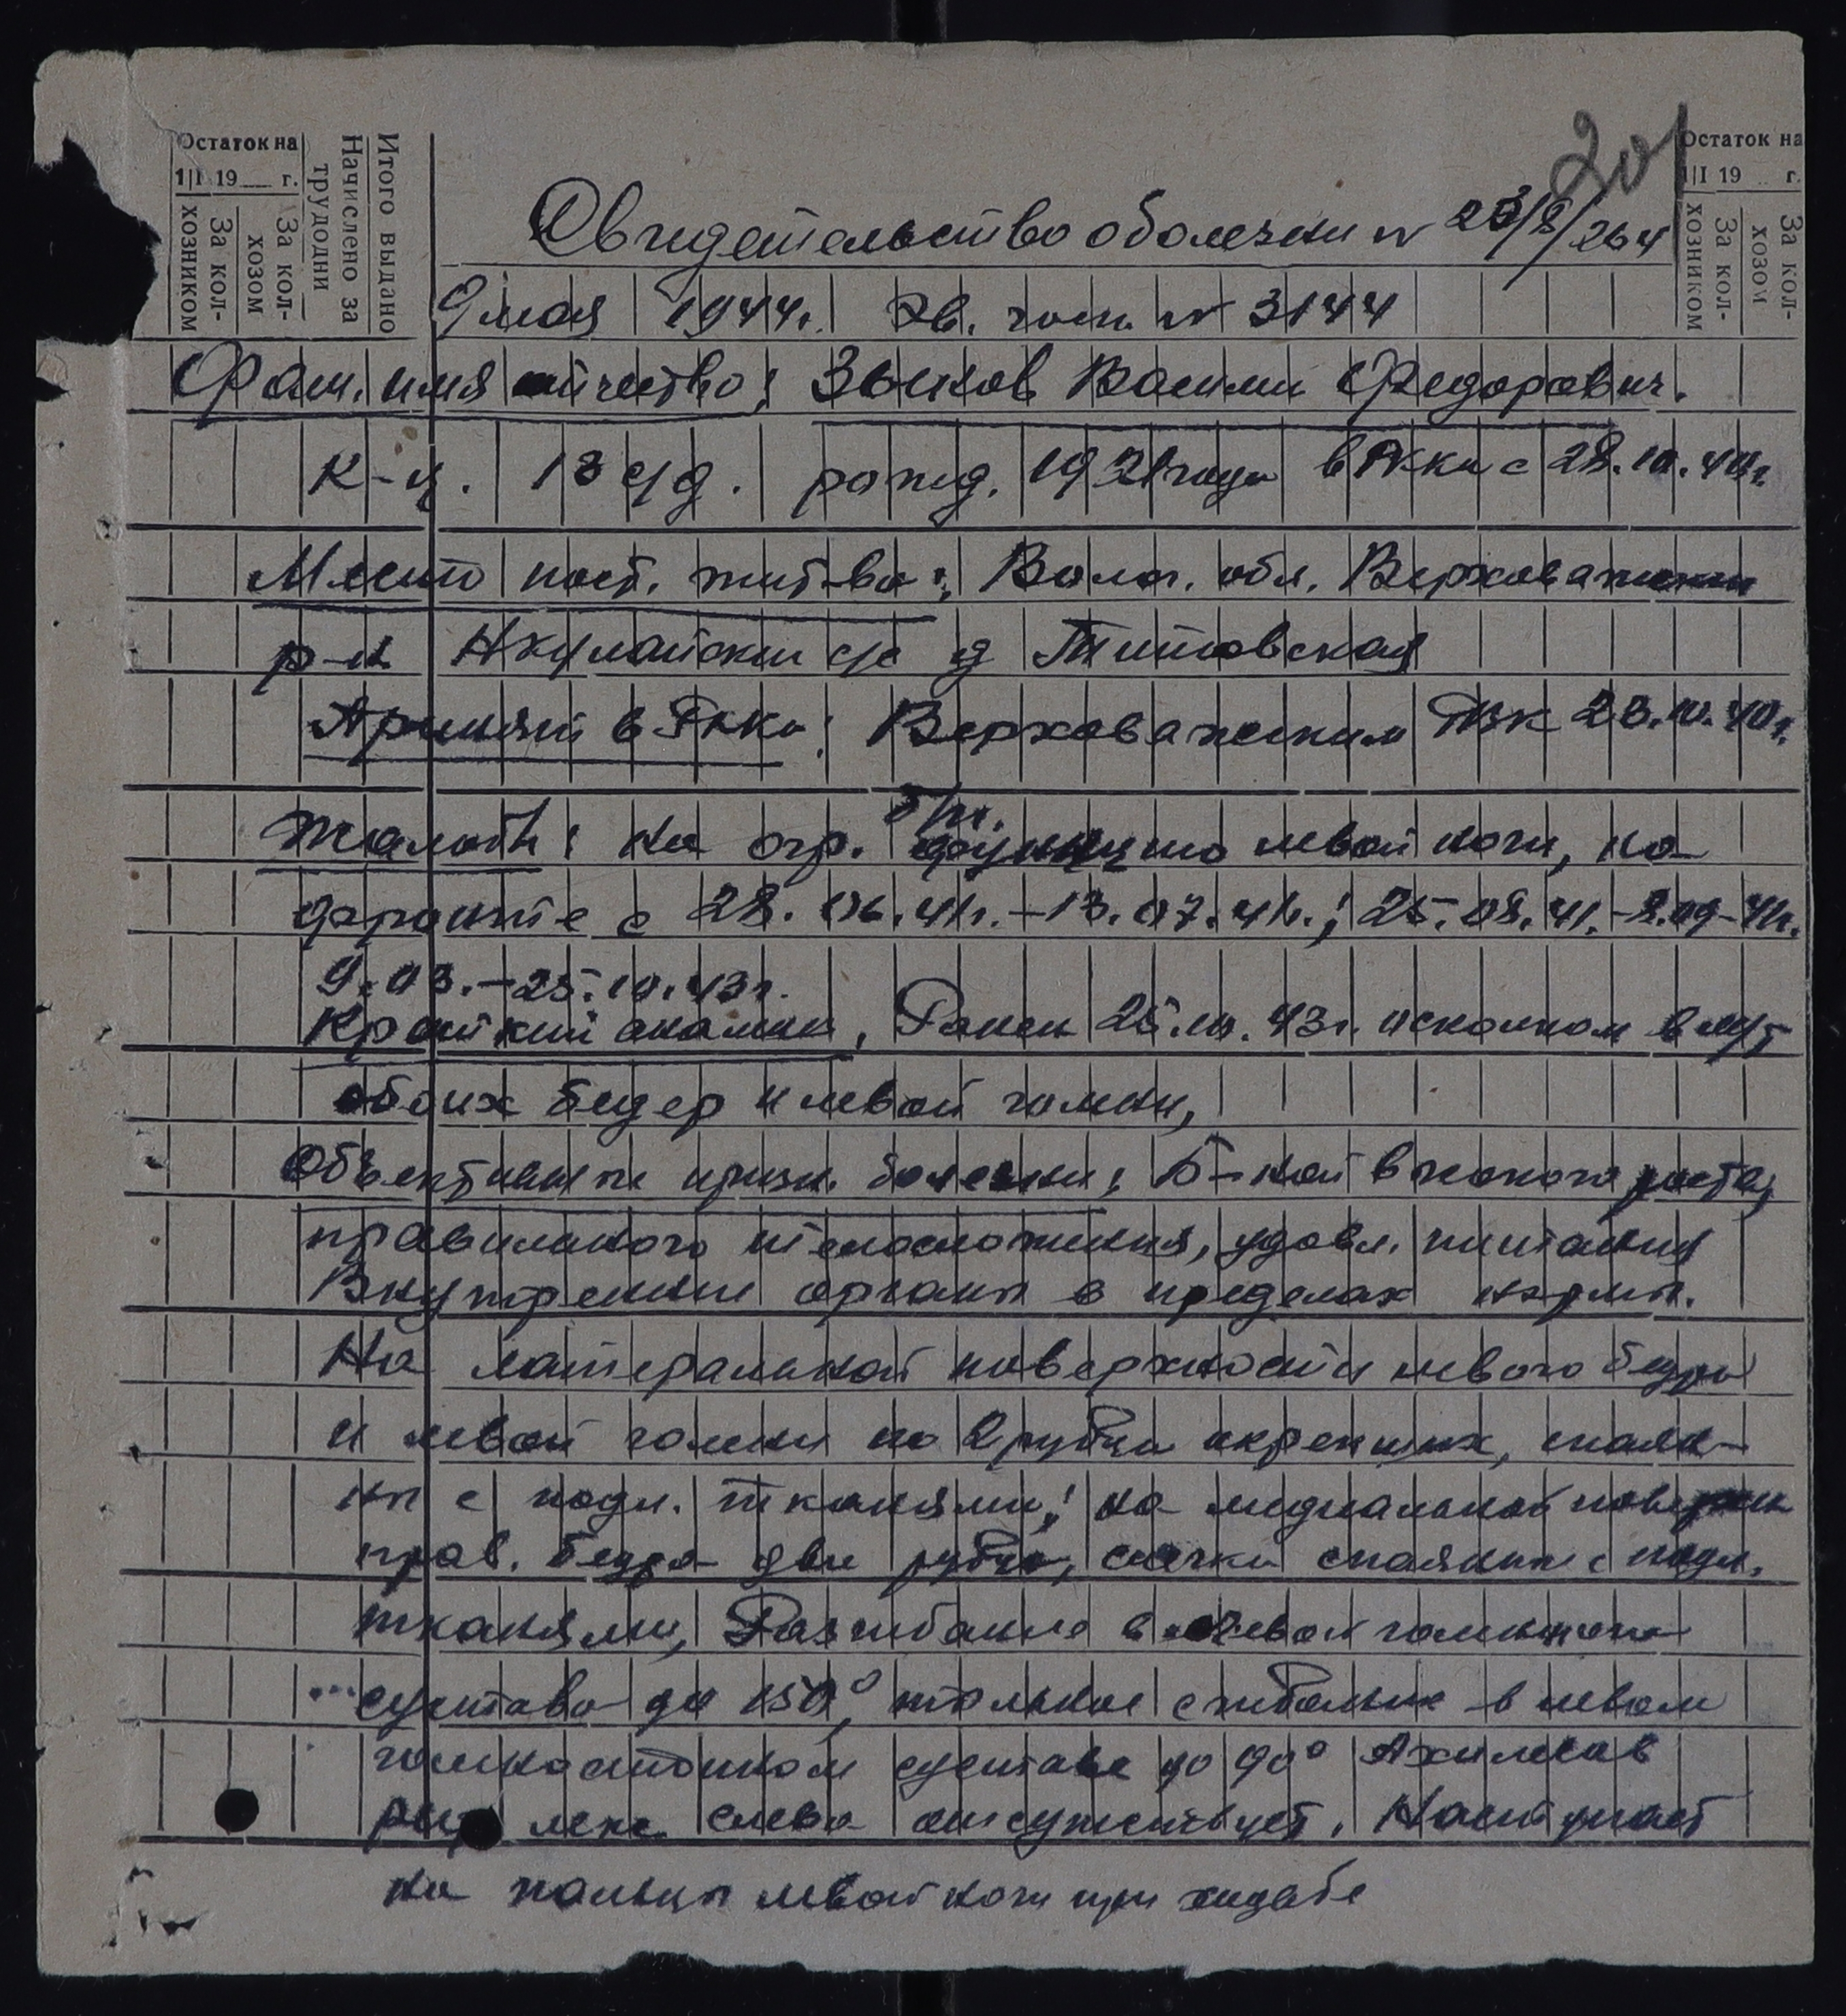 201
Остаток на
1|I 19 г.
За кол-
хозником
За кол-
хозом
Начислено за
трудодни
Итого выдано
Остаток на
1|I 19 г.
За кол-
хозником
За кол-
хозом
Свидетельство о болезни №
9 мая 1944г. Эв. госп. № 3144
Фам. имя отчество: Зыков Василий Федорович.
К-ц. 13 с/д. рожд. 1921 года в РККА с 28.10.40г.
Место пост. жит-ва: Волог. обл. Верховажский
р-н с/с д Титовская
Принят в РККА: Верховажским РВК 28.10.40г.
Жалобы: на огр. функцию левой ноги, на
фронте с 28.06.41г.-13.07.41г.; 25.08.41.-8.09-41г.
9.03.-25.10.43г.
Краткий анамнез, Ранен 25.10.43г. осколком в м/т
обоих бедер и левой голени,
Объективные призн. болезни: Б-ной высокого роста,
правильного телосложения, удовл. питания
Внутренние органы в пределах нормы.
На латеральной поверхности левого бедра
и левой голени по 2 рубца окрепших, спаян-
ны с подл. тканями; на медиальной поверхн
прав. бедра два рубца, слегка спаянные с подл.
тканями, Разгибание в левом
сустава до 150°, тыльное сгибание в левом
голеностопном суставе до 90° Ахиллов
рефлекс слева отсутствует. Наступает
на пальцы левой ноги при ходьбе